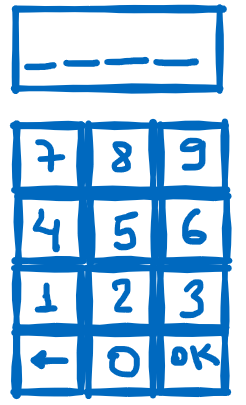 _ _ _ _
7 8 9
4 5 6
1 2 3
← 0 OK